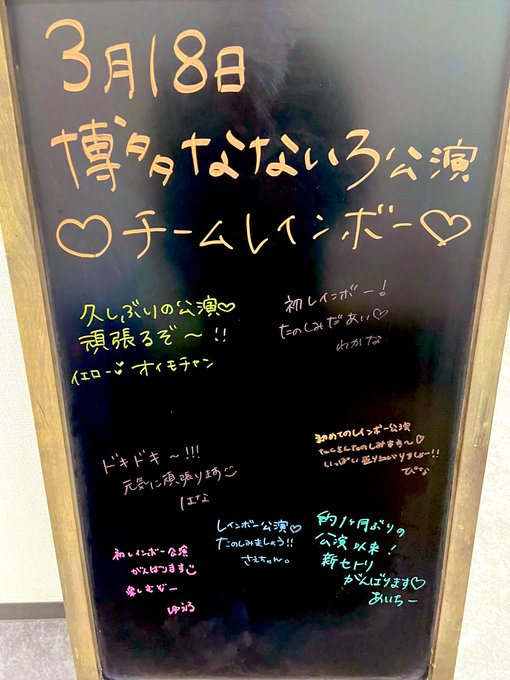 3月18日
博多なないろ公演
♡チームレインボー♡
久しぶりの公演♡
頑張るぞ〜!!
イエロー オイモチャン
初レインボー!
たのしみだあい♡
わかな
ドキドキ〜!!!
元気に頑張ります
はな
初めてのレインボー公演
たくさんたのしみます〜♡
いっぱい盛り上がりましょー!!
ぴな
初レインボー公演
がんばります
楽しむぞー
ゆうる
レインボー公演♡
たのしみましょう!!
さえちゃん。
約1ヶ月ぶりの
公演以来!
新セトリ
がんばります♡
あいちー